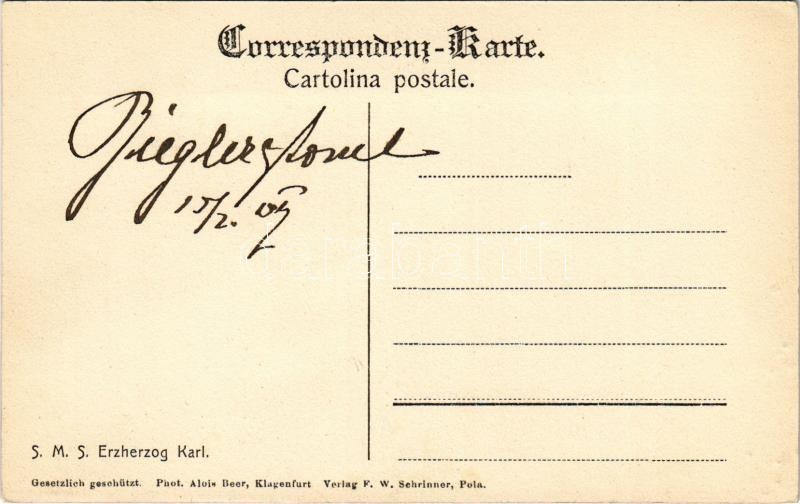 Correspondenz-Karte.
Cartolina postale.
15/2. 07
darabanth
S. M. S. Erzherzog Karl.
Gesetzlich geschützt. Phot. Alois Beer, Klagenfurt Verlag F. W. Schrinner, Pola.